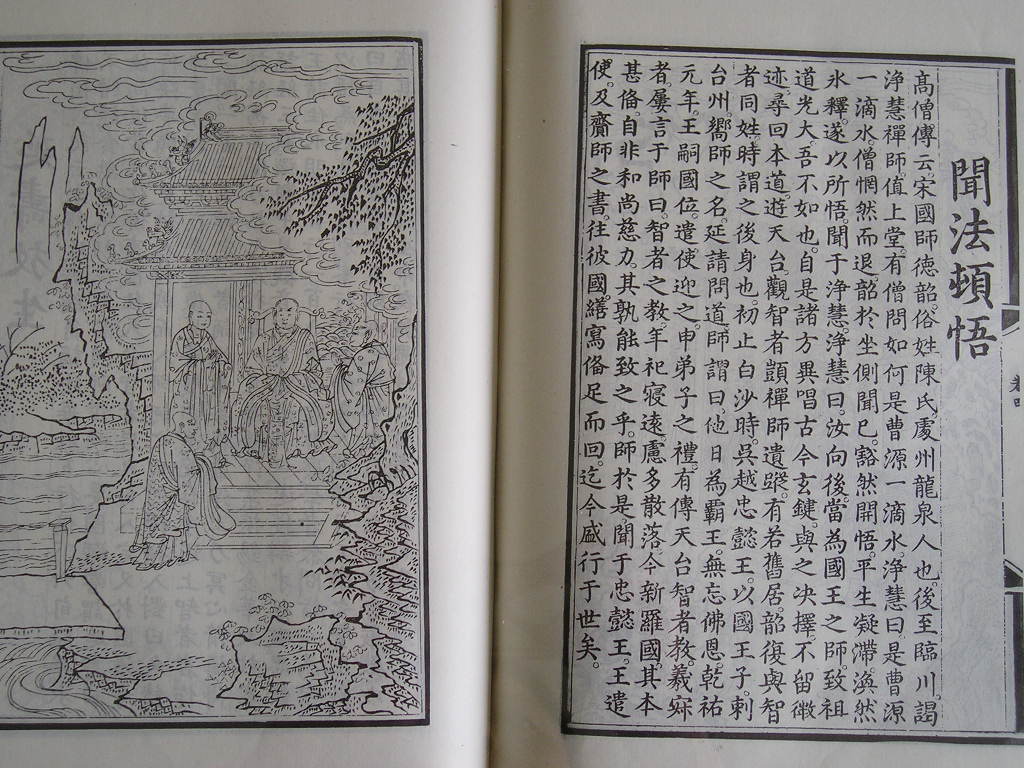 聞法頓悟
高僧傳云。宋國師德韶。俗姓陳氏。處州龍泉人也。後至臨川。謁
淨慧禪師。值上堂。有僧問如何是曹源一滴水。淨慧曰。是曹源
一滴水。僧惘然而退。韶於坐側聞已。豁然開悟。平生疑滯。渙然
氷釋。遂以所悟。聞于淨慧。淨慧曰。汝向後。當為國王之師。致祖
道光大。吾不如也。自是諸方異唱。古今玄鍵。與之决擇。不留微
迹。尋回本道。遊天台。觀智者顗禪師遺蹤。有若舊居。韶復與智
者同姓。時謂之後身也。初止白沙時。吳越忠懿王。以國王子。刺
台州。嚮師之名。延請問道。師謂曰。他日為霸王。無忘佛恩。乾祐
元年。王嗣國位。遣使迎之。申弟子之禮。有傳天台智者教。義寂
者。屢言于師曰。智者之教。年祀寖遠。慮多散落。今新羅國。其本
甚俻。自非和尚慈力。其孰能致之乎。師於是聞于忠懿王。王遣
使。及齎師之書。往彼國。繕寫俻足而回。迄今盛行于世矣。
卷四